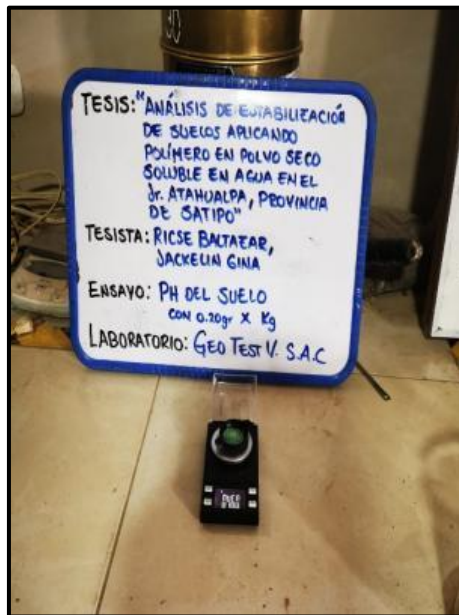 TESIS: "ANÁLISIS DE ESTABILIZACIÓN
DE SUELOS APLICANDO
POLÍMERO EN POLVO SECO
SOLUBLE EN AGUA EN EL
Jr. ATAHUALPA, PROVINCIA
DE SATIPO"
TESISTA: RICSE BALTAZAR,
JACKELIN GINA
ENSAYO: PH DEL SUELO
CON 0.20gr X Kg
LABORATORIO: GEO TEST V. S.A.C